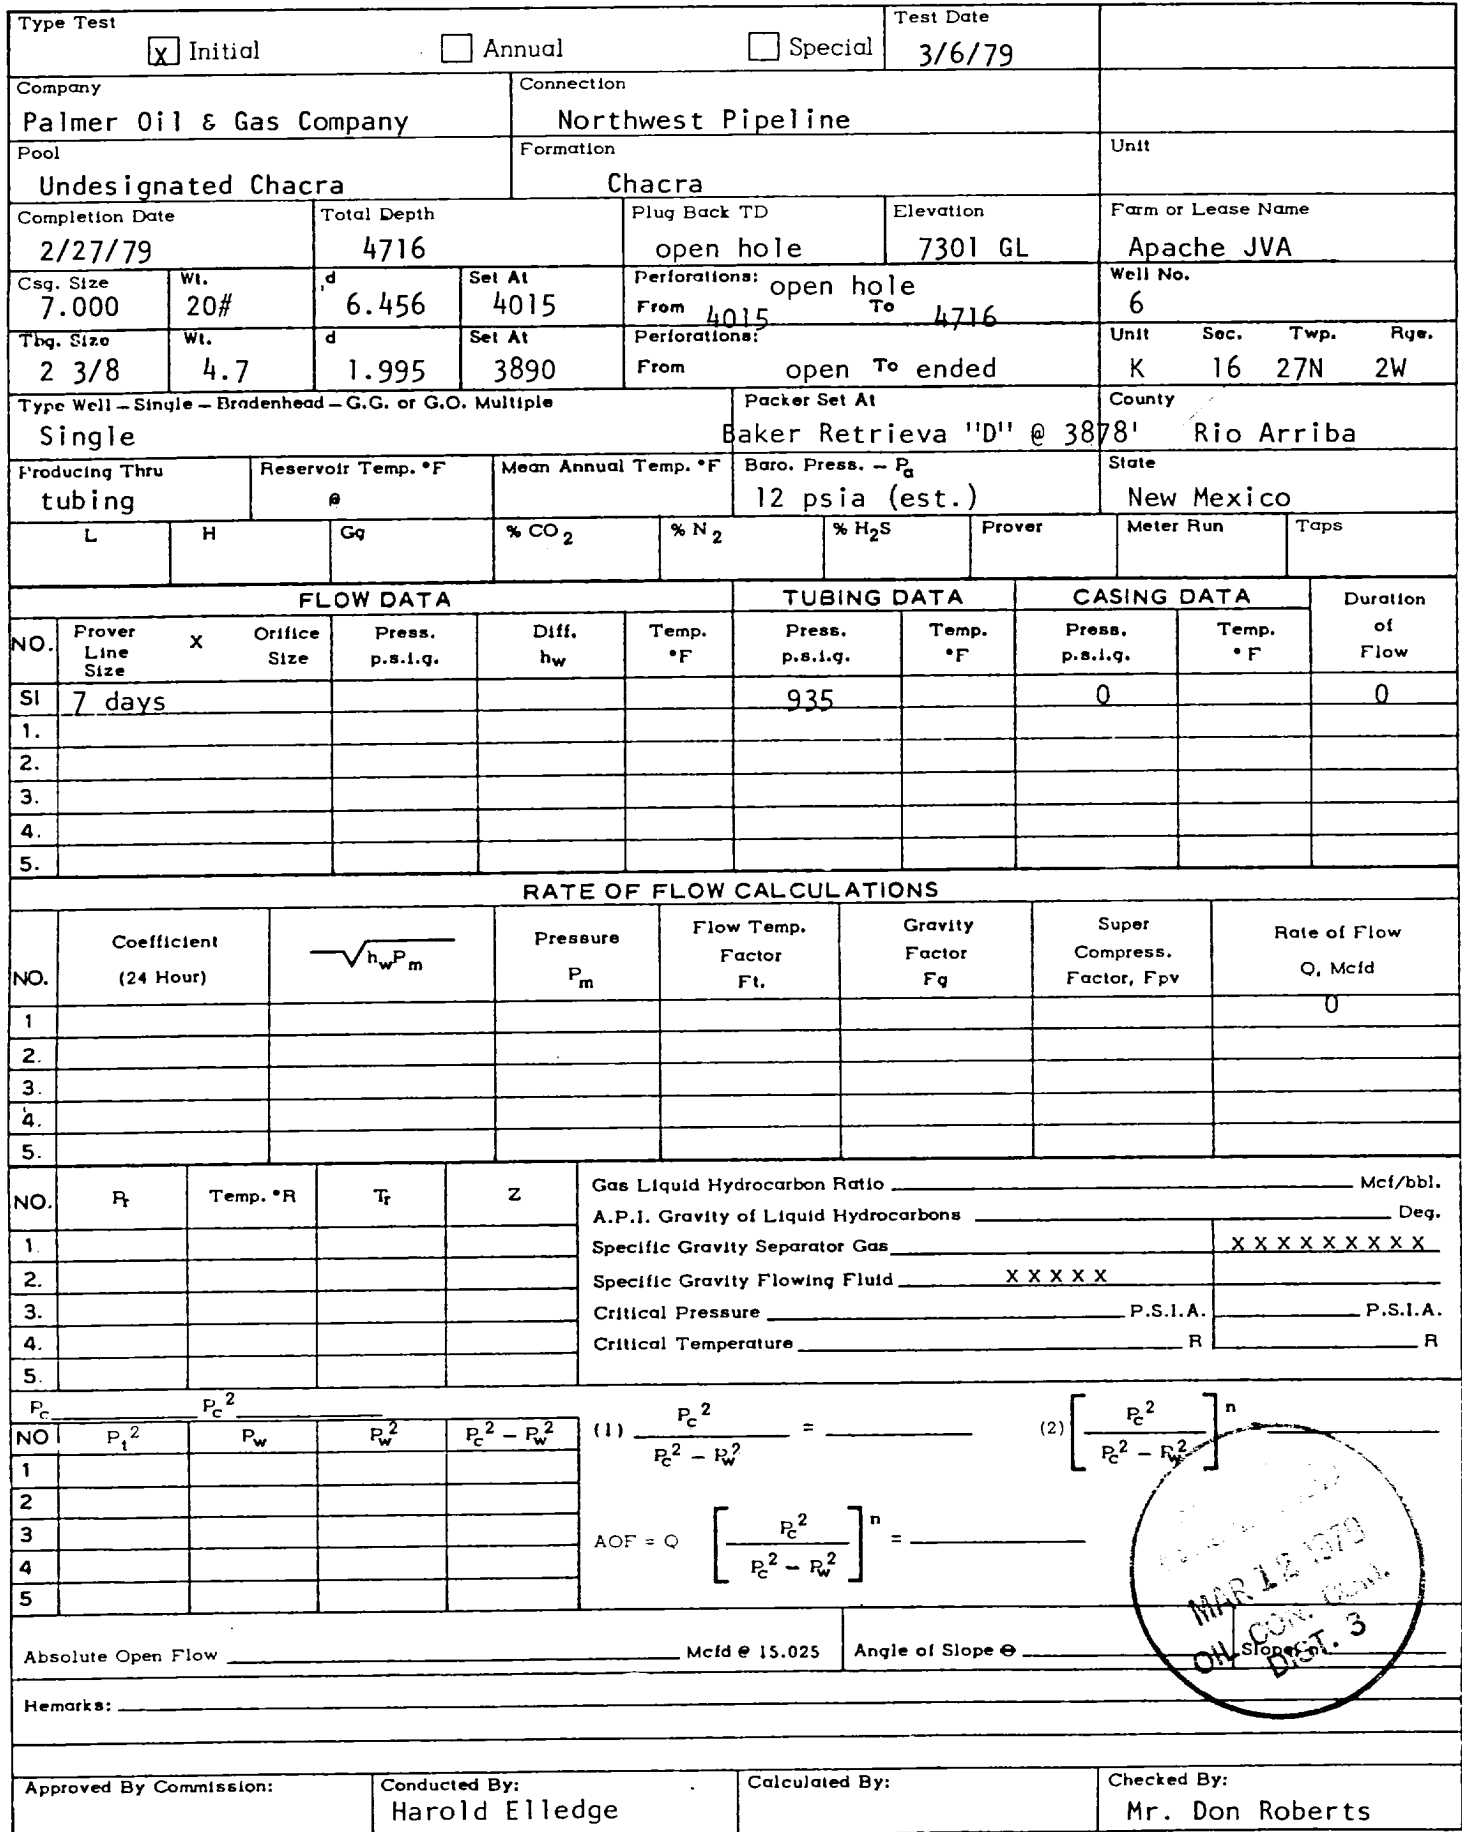 Type Test
X Initial Annual Special
Test Date
3/6/79
Company
Palmer Oil & Gas Company
Connection
Northwest Pipeline
Pool
Undesignated Chacra
Formation
Chacra
Unit
Completion Date
2/27/79
Total Depth
4716
Plug Back TD
open hole
Elevation
7301 GL
Farm or Lease Name
Apache JVA
Csg. Size
7.000
Wt.
20#
d
6.456
Set At
4015
Perforations: open hole
From 4015 To 4716
Well No.
6
Tbg. Size
2 3/8
Wt.
4.7
d
1.995
Set At
3890
Perforations:
From open To ended
Unit Sec. Twp. Rge.
K 16 27N 2W
Type Well – Single – Bradenhead – G.G. or G.O. Multiple
Single
Packer Set At
Baker Retrieva "D" @ 3878'
County
Rio Arriba
Producing Thru
tubing
Reservoir Temp. °F
@
Mean Annual Temp. °F
Baro. Press. – Pa
12 psia (est.)
State
New Mexico
L H Gg % CO2 % N2 % H2S Prover Meter Run Taps
FLOW DATA TUBING DATA CASING DATA Duration of Flow
NO. Prover Line Size X Orifice Size Press. p.s.i.g. Diff. hw Temp. °F Press. p.s.i.g. Temp. °F Press. p.s.i.g. Temp. °F
SI 7 days 935 0 0
1.
2.
3.
4.
5.
RATE OF FLOW CALCULATIONS
NO. Coefficient (24 Hour) √hwPm Pressure Pm Flow Temp. Factor Ft. Gravity Factor Fg Super Compress. Factor, Fpv Rate of Flow Q, Mcfd
1 0
2.
3.
4.
5.
NO. Pr Temp. °R Tr Z
1.
2.
3.
4.
5.
Gas Liquid Hydrocarbon Ratio Mcf/bbl.
A.P.I. Gravity of Liquid Hydrocarbons Deg.
Specific Gravity Separator Gas X X X X X X X X X
Specific Gravity Flowing Fluid X X X X X
Critical Pressure P.S.I.A. P.S.I.A.
Critical Temperature R R
Pc Pc²
NO Pt² Pw Pw² Pc² – Pw²
1
2
3
4
5
(1) Pc² / Pc² – Pw² =
(2) [Pc² / Pc² – Pw²]n =
AOF = Q [Pc² / Pc² – Pw²]n =
MAR 12 1979
OIL CON. COM.
DIST. 3
Absolute Open Flow Mcfd @ 15.025
Angle of Slope Θ
Remarks:
Approved By Commission:
Conducted By:
Harold Elledge
Calculated By:
Checked By:
Mr. Don Roberts